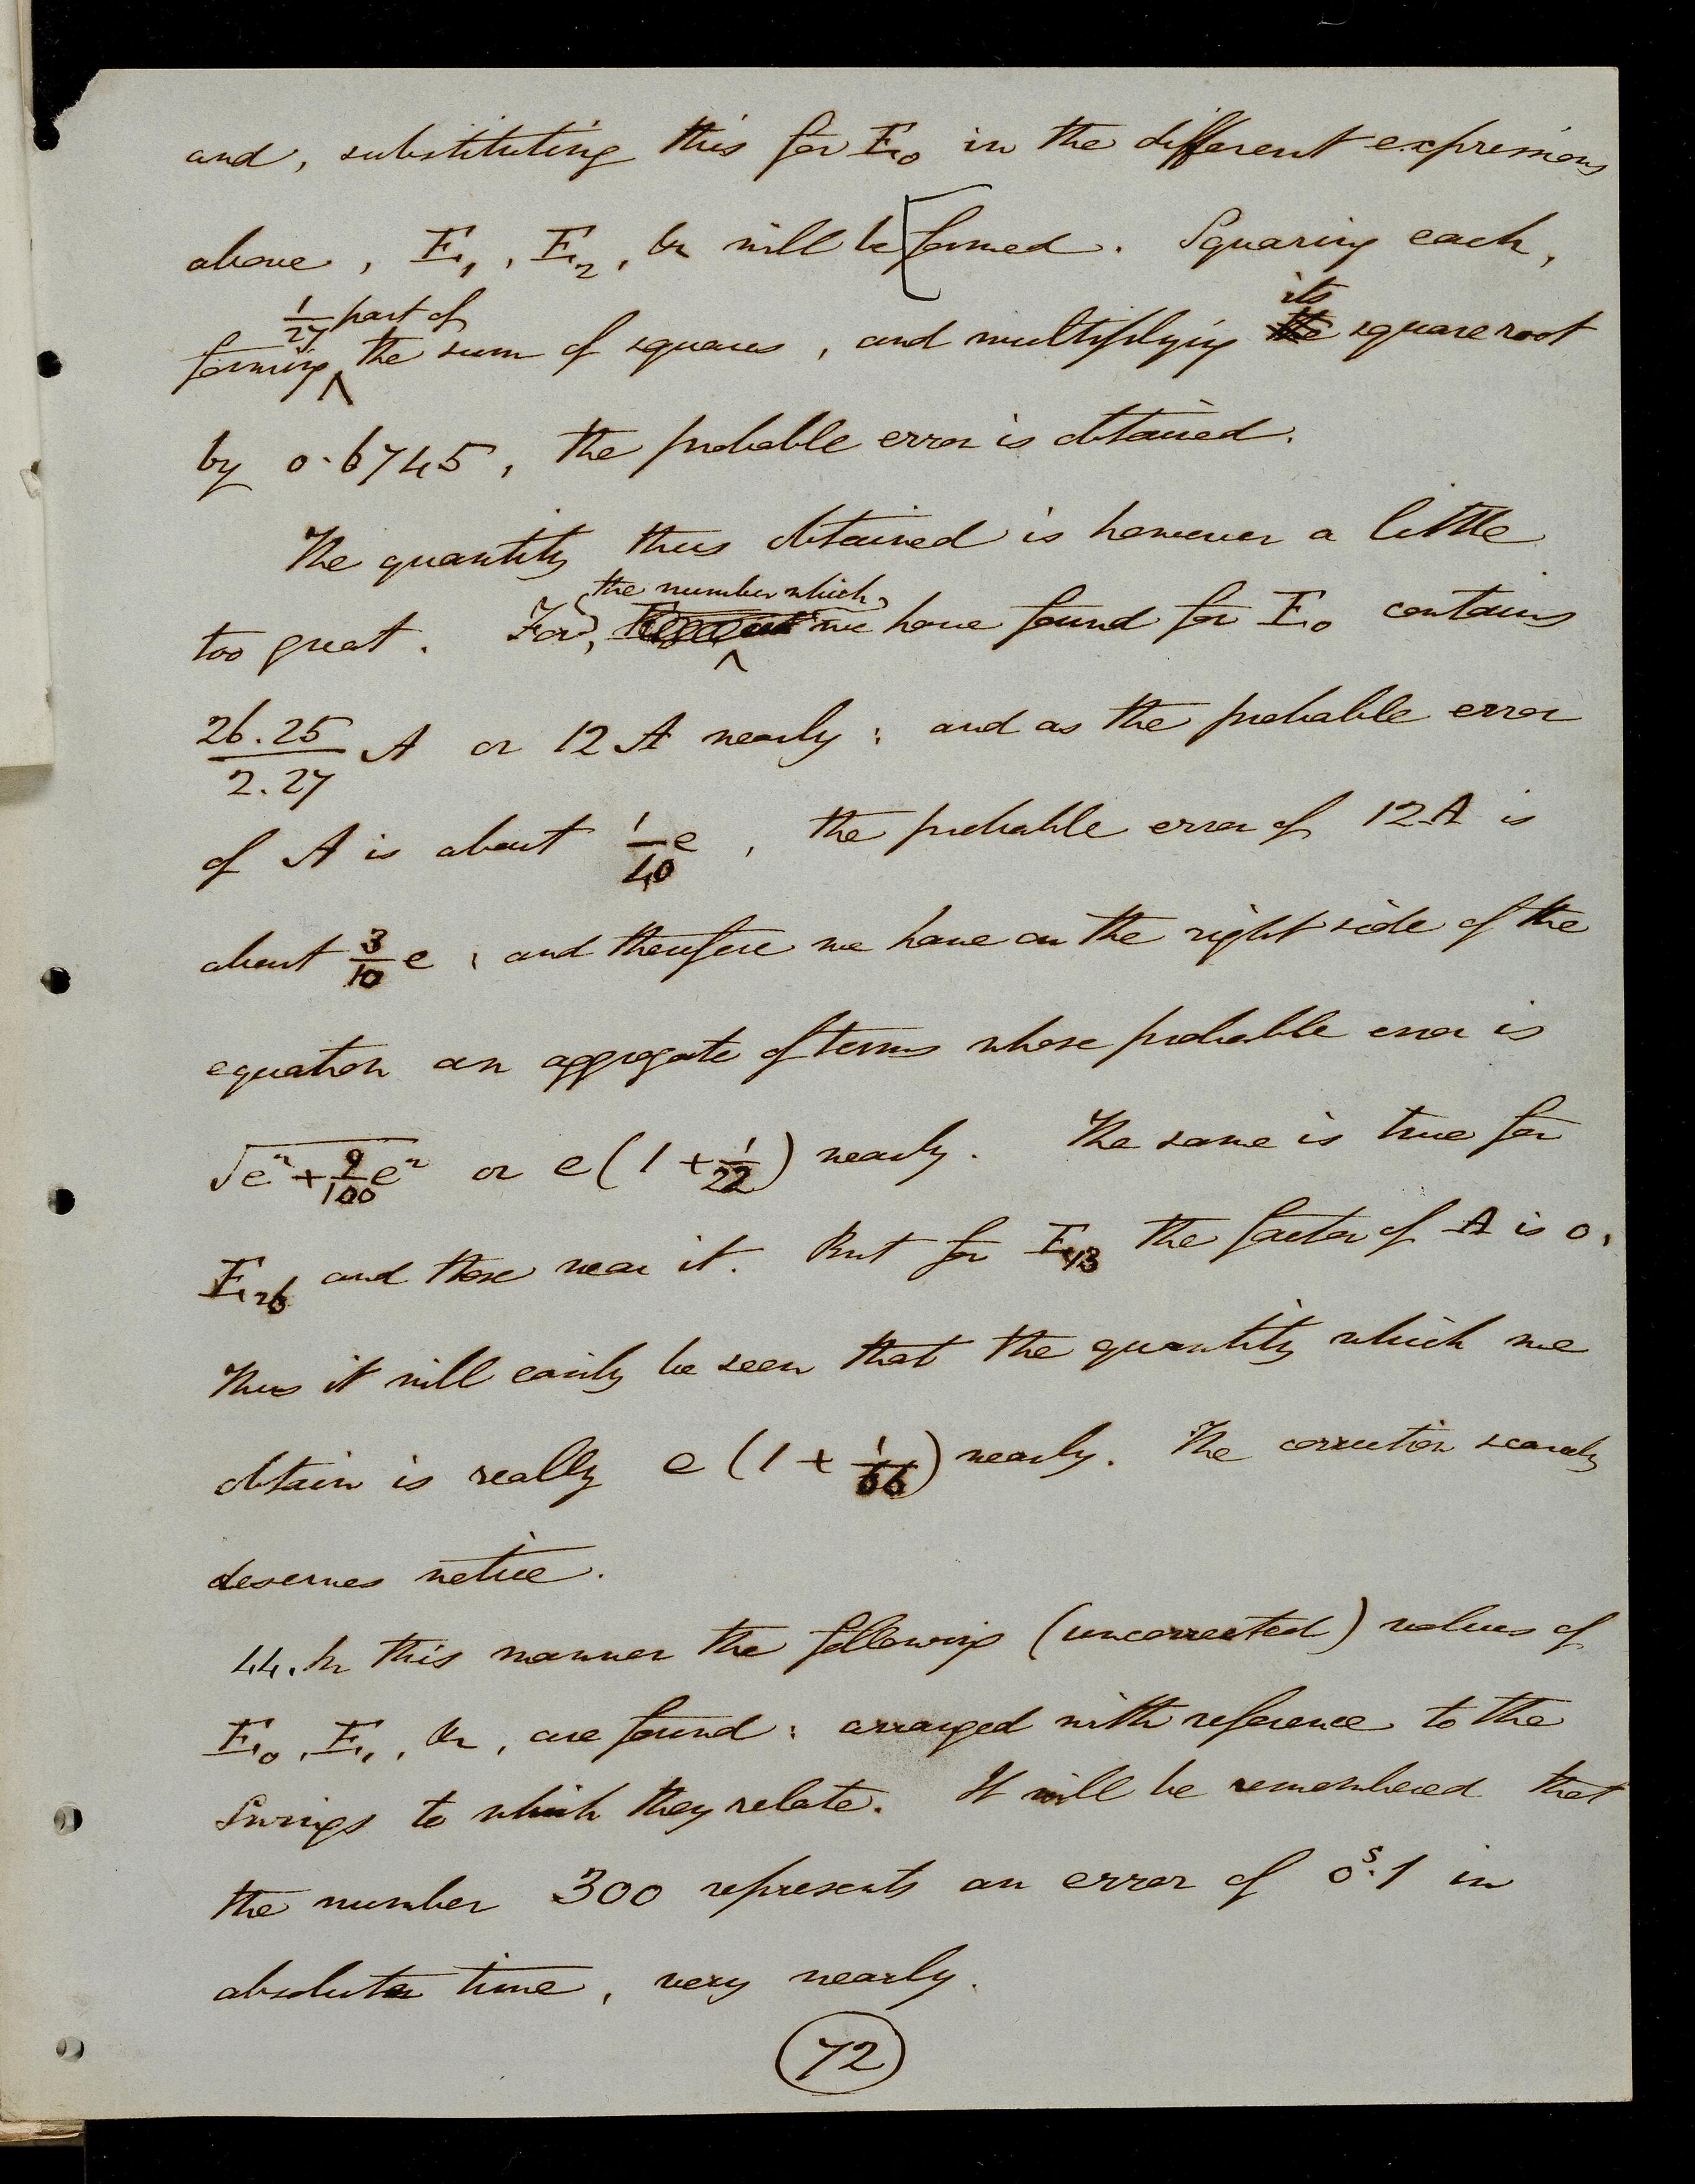 and, substituting this for E₀ in the different expressions
above, E₁, E₂, &c will be [formed. Squaring each,
forming 1/27 part of the sum of squares, and multiplying its square root
by 0.6745, the probable error is obtained.
The quantity thus obtained is however a little
too great. For, the number which we have found for E₀ contains
26.25/2.27 A or 12 A nearly; and as the probable error
of A is about 1/40 e, the probable error of 12 A is
about 3/10 e; and therefore we have on the right side of the
equation an aggregate of terms whose probable error is
√(e² + 9/100 e²) or e (1 + 1/22) nearly. The same is true for
E₂₆ and those near it. But for E₁₃ the factor of A is 0.
Thus it will easily be seen that the quantity which we
obtain is really e (1 + 1/66) nearly. The correction scarcely
deserves notice.
44. In this manner the following (uncorrected) values of
E₀, E₁, &c, are found; arranged with reference to the
Swings to which they relate. It will be remembered that
the number 300 represents an error of 0ˢ.1 in
absolute time, very nearly.
72